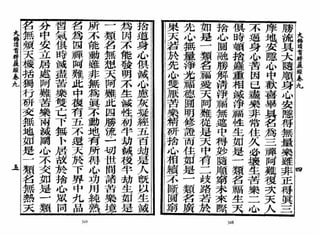 大佛頂首楞嚴經卷九
四
勝流具大隨順身心安隱得無量樂雖非正得眞三
摩地安隱心中歡喜畢具名爲三禪阿難復次天人
不逼身心苦因已盡樂非常住久必壞生苦樂二心
俱時頓捨麤重相滅淨福性生如是一類名福生天
捨心圓融勝解清淨福無遮中得妙隨順窮未來際
如是一類名福愛天阿難從是天中有二岐路若於
先心無量淨光福德圓明修證而住如是一類名廣
果天若於先心雙厭苦樂精研捨心相續不斷圓窮
捨道身心俱滅心慮灰凝經五百劫是人既以生滅
爲因不能發明不生滅性初半劫滅後半劫生如是
一類名無想天阿難此四勝流一切世間諸苦樂境
所不能動雖非無爲眞不動地有所得心功用純熟
名爲四禪阿難此中復有五不還天於下界中九品
習氣俱時滅盡苦樂雙亡下無卜居故於捨心眾同
分中安立居處阿難苦樂兩滅鬥心不交如是一類
名無煩天機括獨行研交無地如是一類名無熱天
大佛頂首楞嚴經卷九
五